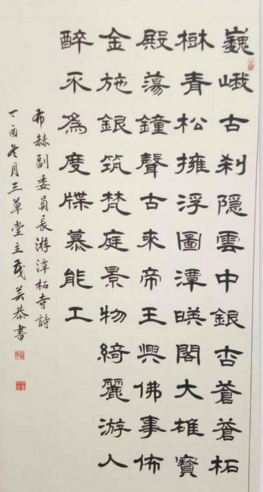 巍峨古刹隱雲中銀杏蒼蒼柘
樹青松擁浮圖潭暎閣大雄寶
殿蕩鐘聲古來帝王興佛事佈
金施銀筑梵庭景物綺麗游人
醉不為度牒慕能工
布赫副委員長游潭柘寺詩
丁酉冬月三草堂主恭書